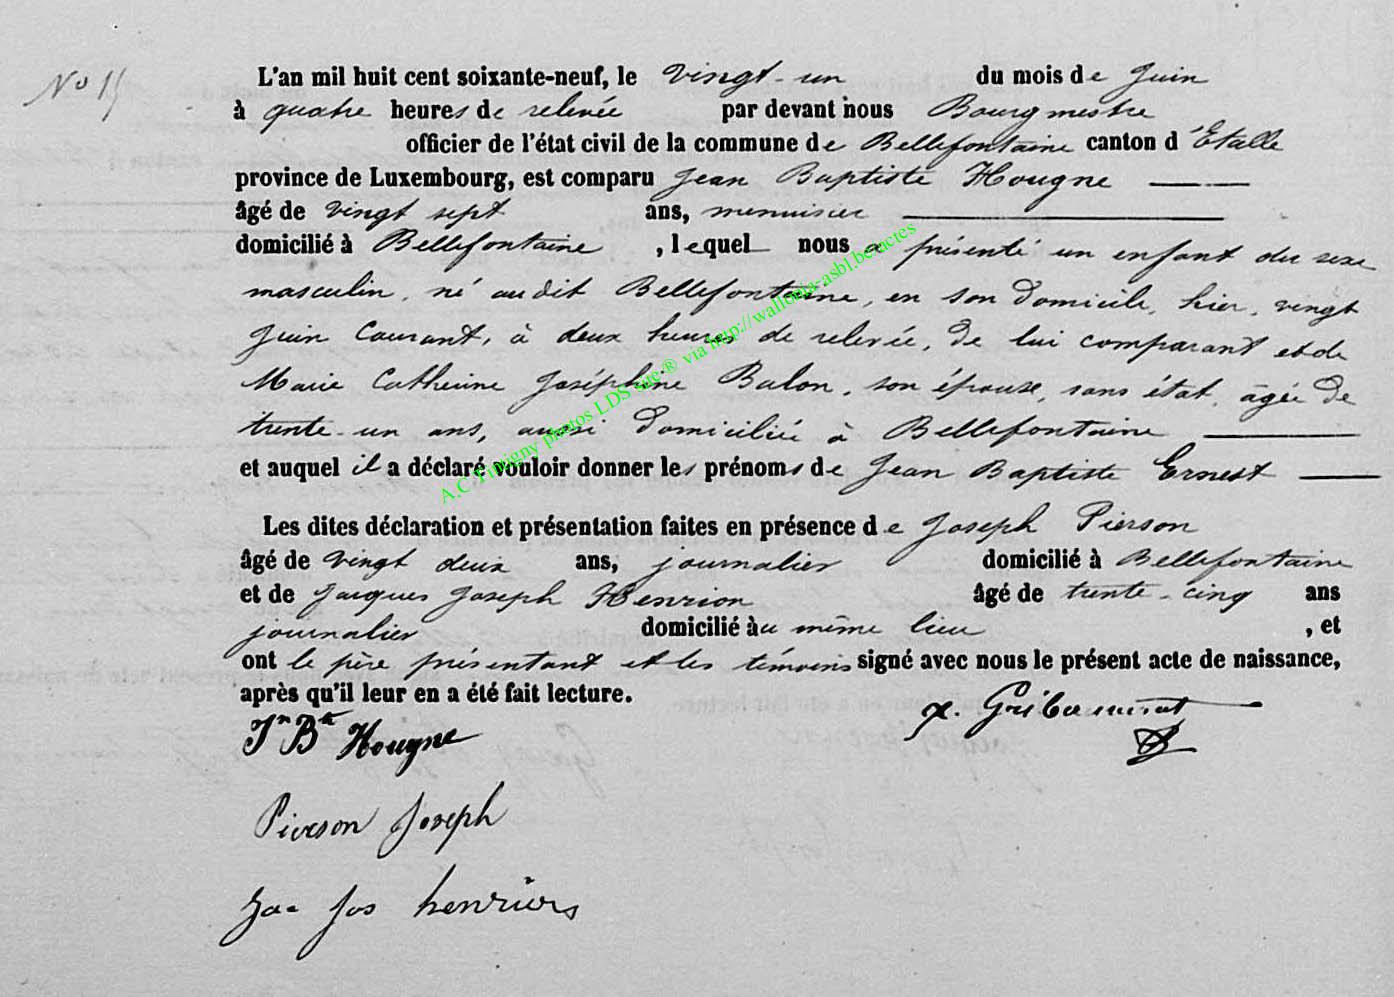 N° 15
L'an mil huit cent soixante-neuf, le vingt-un du mois de Juin
à quatre heures de relevée par devant nous Bourgmestre
officier de l'état civil de la commune de Bellefontaine canton d'Étalle
province de Luxembourg, est comparu Jean Baptiste Hougne
âgé de vingt sept ans, menuisier
domicilié à Bellefontaine, lequel nous a présenté un enfant du sexe
masculin, né audit Bellefontaine, en son domicile, hier, vingt
Juin Courant, à deux heures de relevée, de lui comparant et de
Marie Catherine Joséphine Balon, son épouse, sans état, âgée de
trente-un ans, aussi domiciliée à Bellefontaine
et auquel il a déclaré vouloir donner les prénoms de Jean Baptiste Ernest
Les dites déclaration et présentation faites en présence de Joseph Pierson
âgé de vingt deux ans, journalier domicilié à Bellefontaine
et de Jacques Joseph Henrion âgé de trente-cinq ans
journalier domicilié au même lieu, et
ont le père présentant et les témoins signé avec nous le présent acte de naissance,
après qu'il leur en a été fait lecture.
Jn Bte Hougne
Pierson Joseph
Jac Jos henrion
A.C. Tintigny photos LDS site ® via http://wallonia-asbl.be/actes